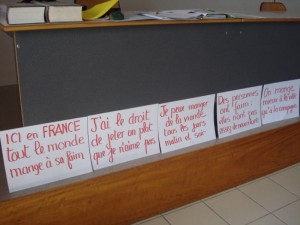 ICI en FRANCE
tout le monde
mange à sa faim
J'ai le droit
de jeter un plat
que je n'aime pas
Je peux manger
de la viande
tous les jours
matin et soir
Des personnes
ont faim:
elles n'ont pas
assez de nourriture
On mange
mieux à la ville
qu'à la campagne